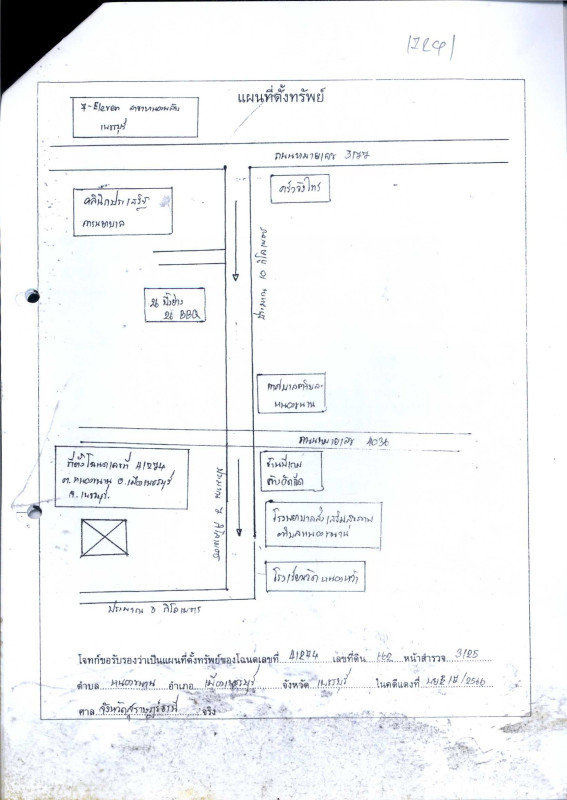 แผนที่ตั้งทรัพย์
7-Eleven
เพชรบุรี
ถนนหมายเลข 3177
คลินิกประเสริฐ
การพยาบาล
ประมาณ 10 กิโลเมตร
BBQ
เทศบาลตำบล
หนองขนาน
ถนนหมายเลข 4036
ที่ตั้งโฉนดเลขที่ 41274
ต.หนองขนาน อ.เมืองเพชรบุรี
จ.เพชรบุรี
ประมาณ 3 กิโลเมตร
โรงพยาบาลส่งเสริมสุขภาพ
ตำบลหนองขนาน
โรงเรียนวัด
ประมาณ 3 กิโลเมตร
โจทก์ขอรับรองว่าเป็นแผนที่ตั้งทรัพย์ของโฉนดเลขที่ 41274 เลขที่ดิน 462 หน้าสำรวจ 3125
ตำบล หนองขนาน อำเภอ เมืองเพชรบุรี จังหวัด เพชรบุรี ในคดีแดงที่ /2566
ศาล จังหวัดสุราษฎร์ธานี จริง